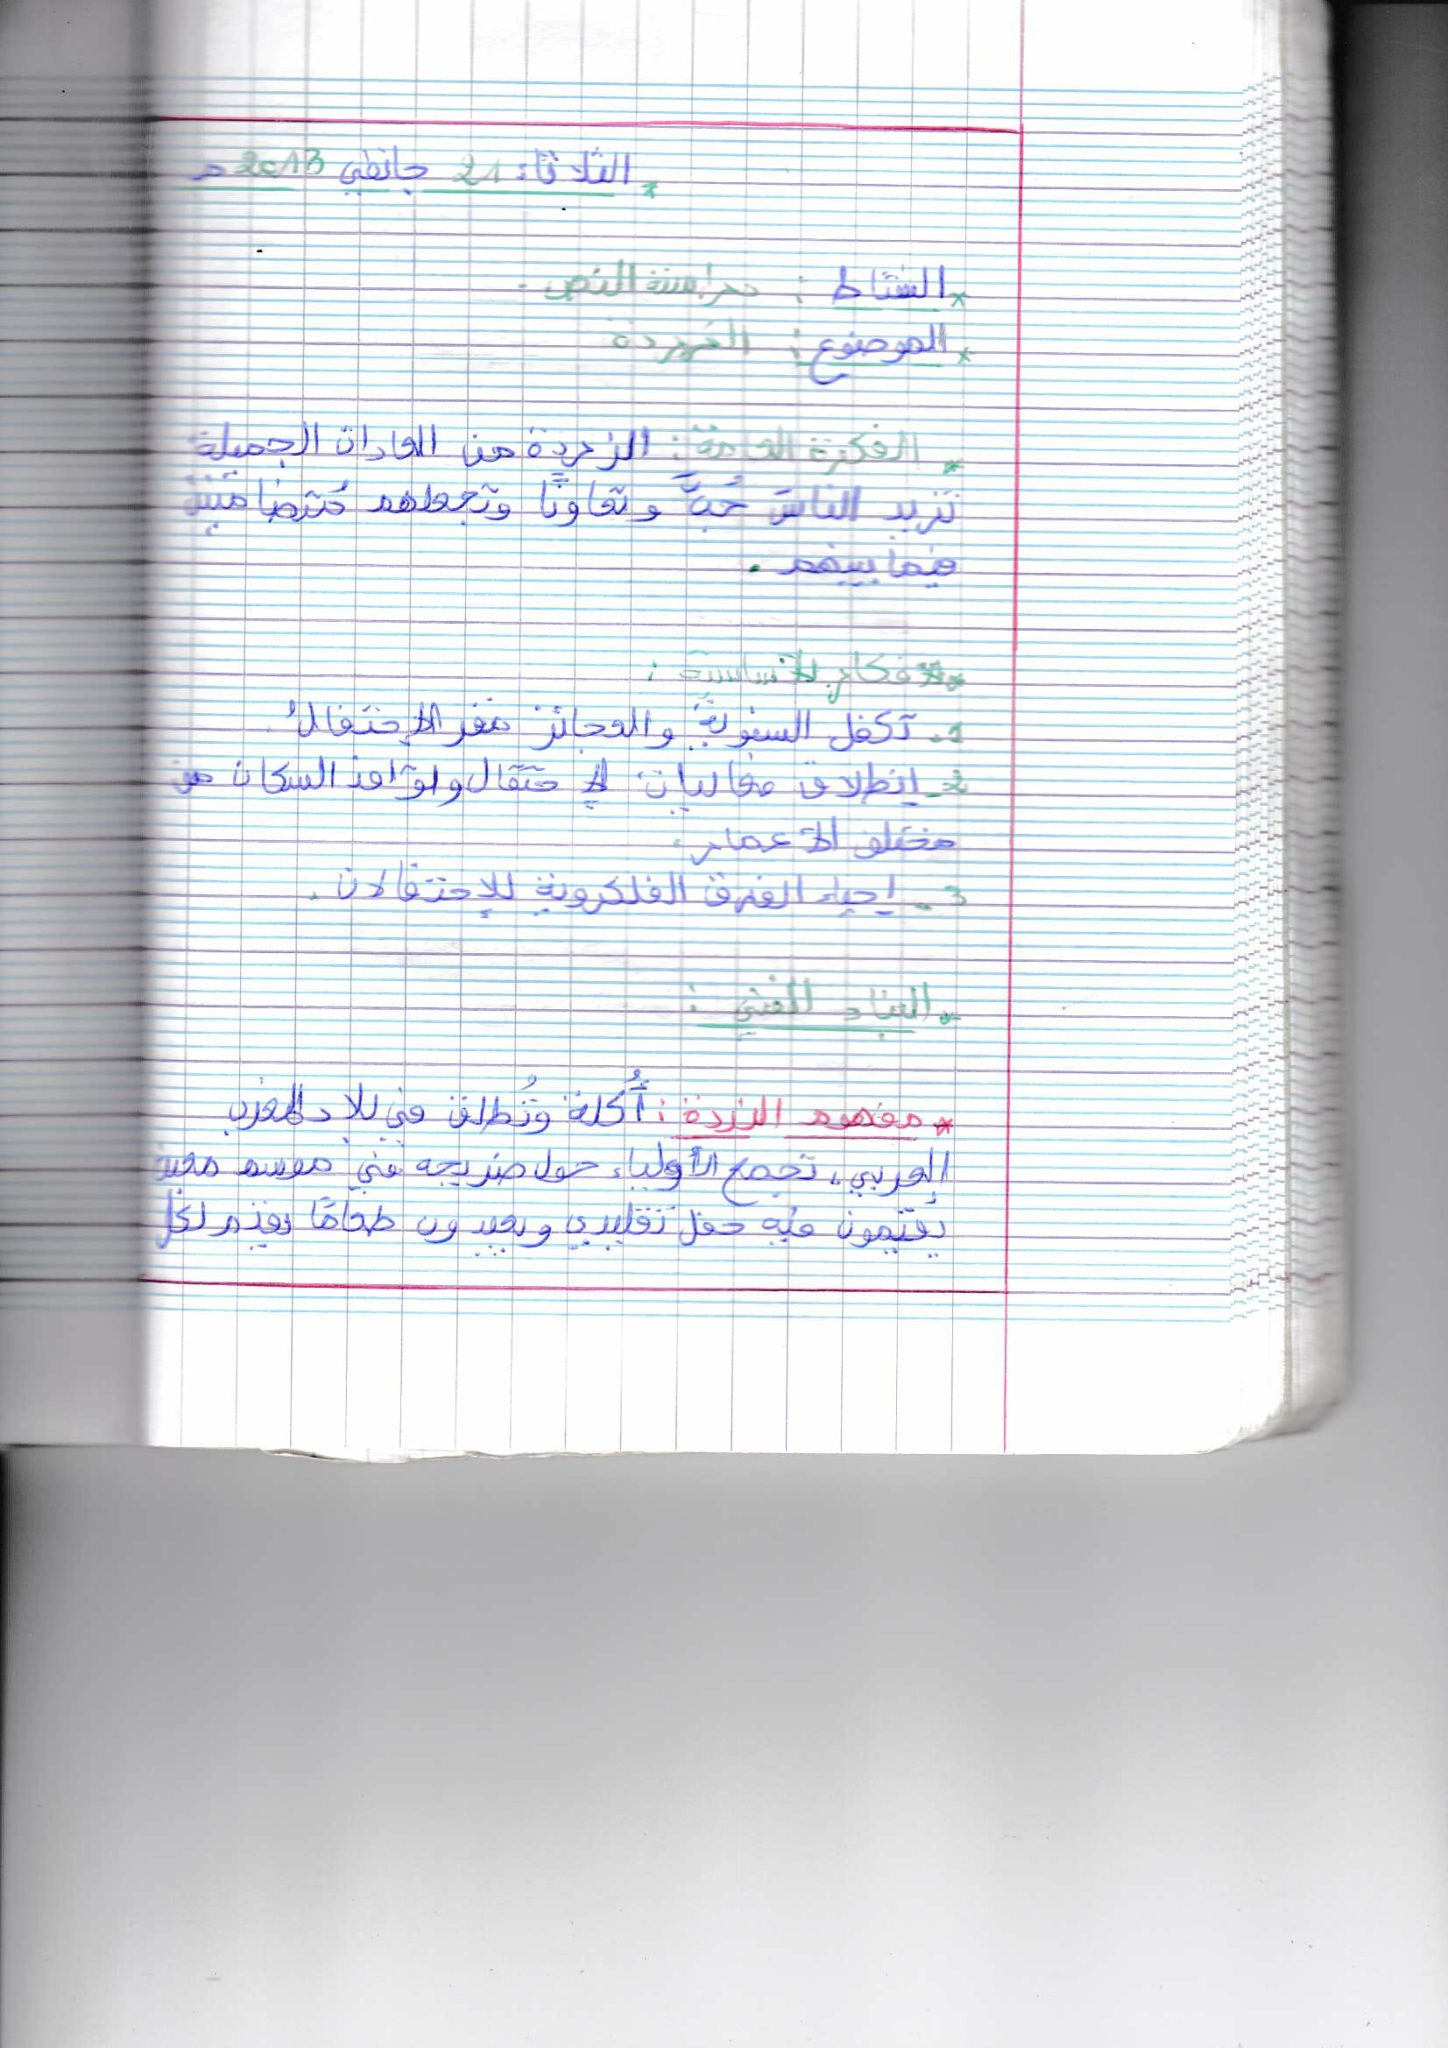 * الثلاثاء 21 جانفي 2013 م
* النشاط : دراسة النص .
* الموضوع : الزردة
* الفكرة العامة : الزردة من العادات الجميلة
تزيد الناس حُبًّا وتعاونًا وتجعلهم مُتضامنين
فيما بينهم .
* الأفكار الأساسية :
1 - تكفل السنوية والعجائز مقر الإحتفال .
2 - إنطلاق فعاليات الإحتفال وتوافد السكان من
مختلف الأعمار .
3 - إحياء الفرق الفلكرونية للإحتفالات .
* البناء الفني :
* مفهوم الزردة : أُكلة وتُطلق في بلاد المغرب
العربي ، تجمع الأولياء حول ضريحه في موسم معين
يُقيمون فيه حفل تقليدي ويعيدون طعامًا يقدم لكل